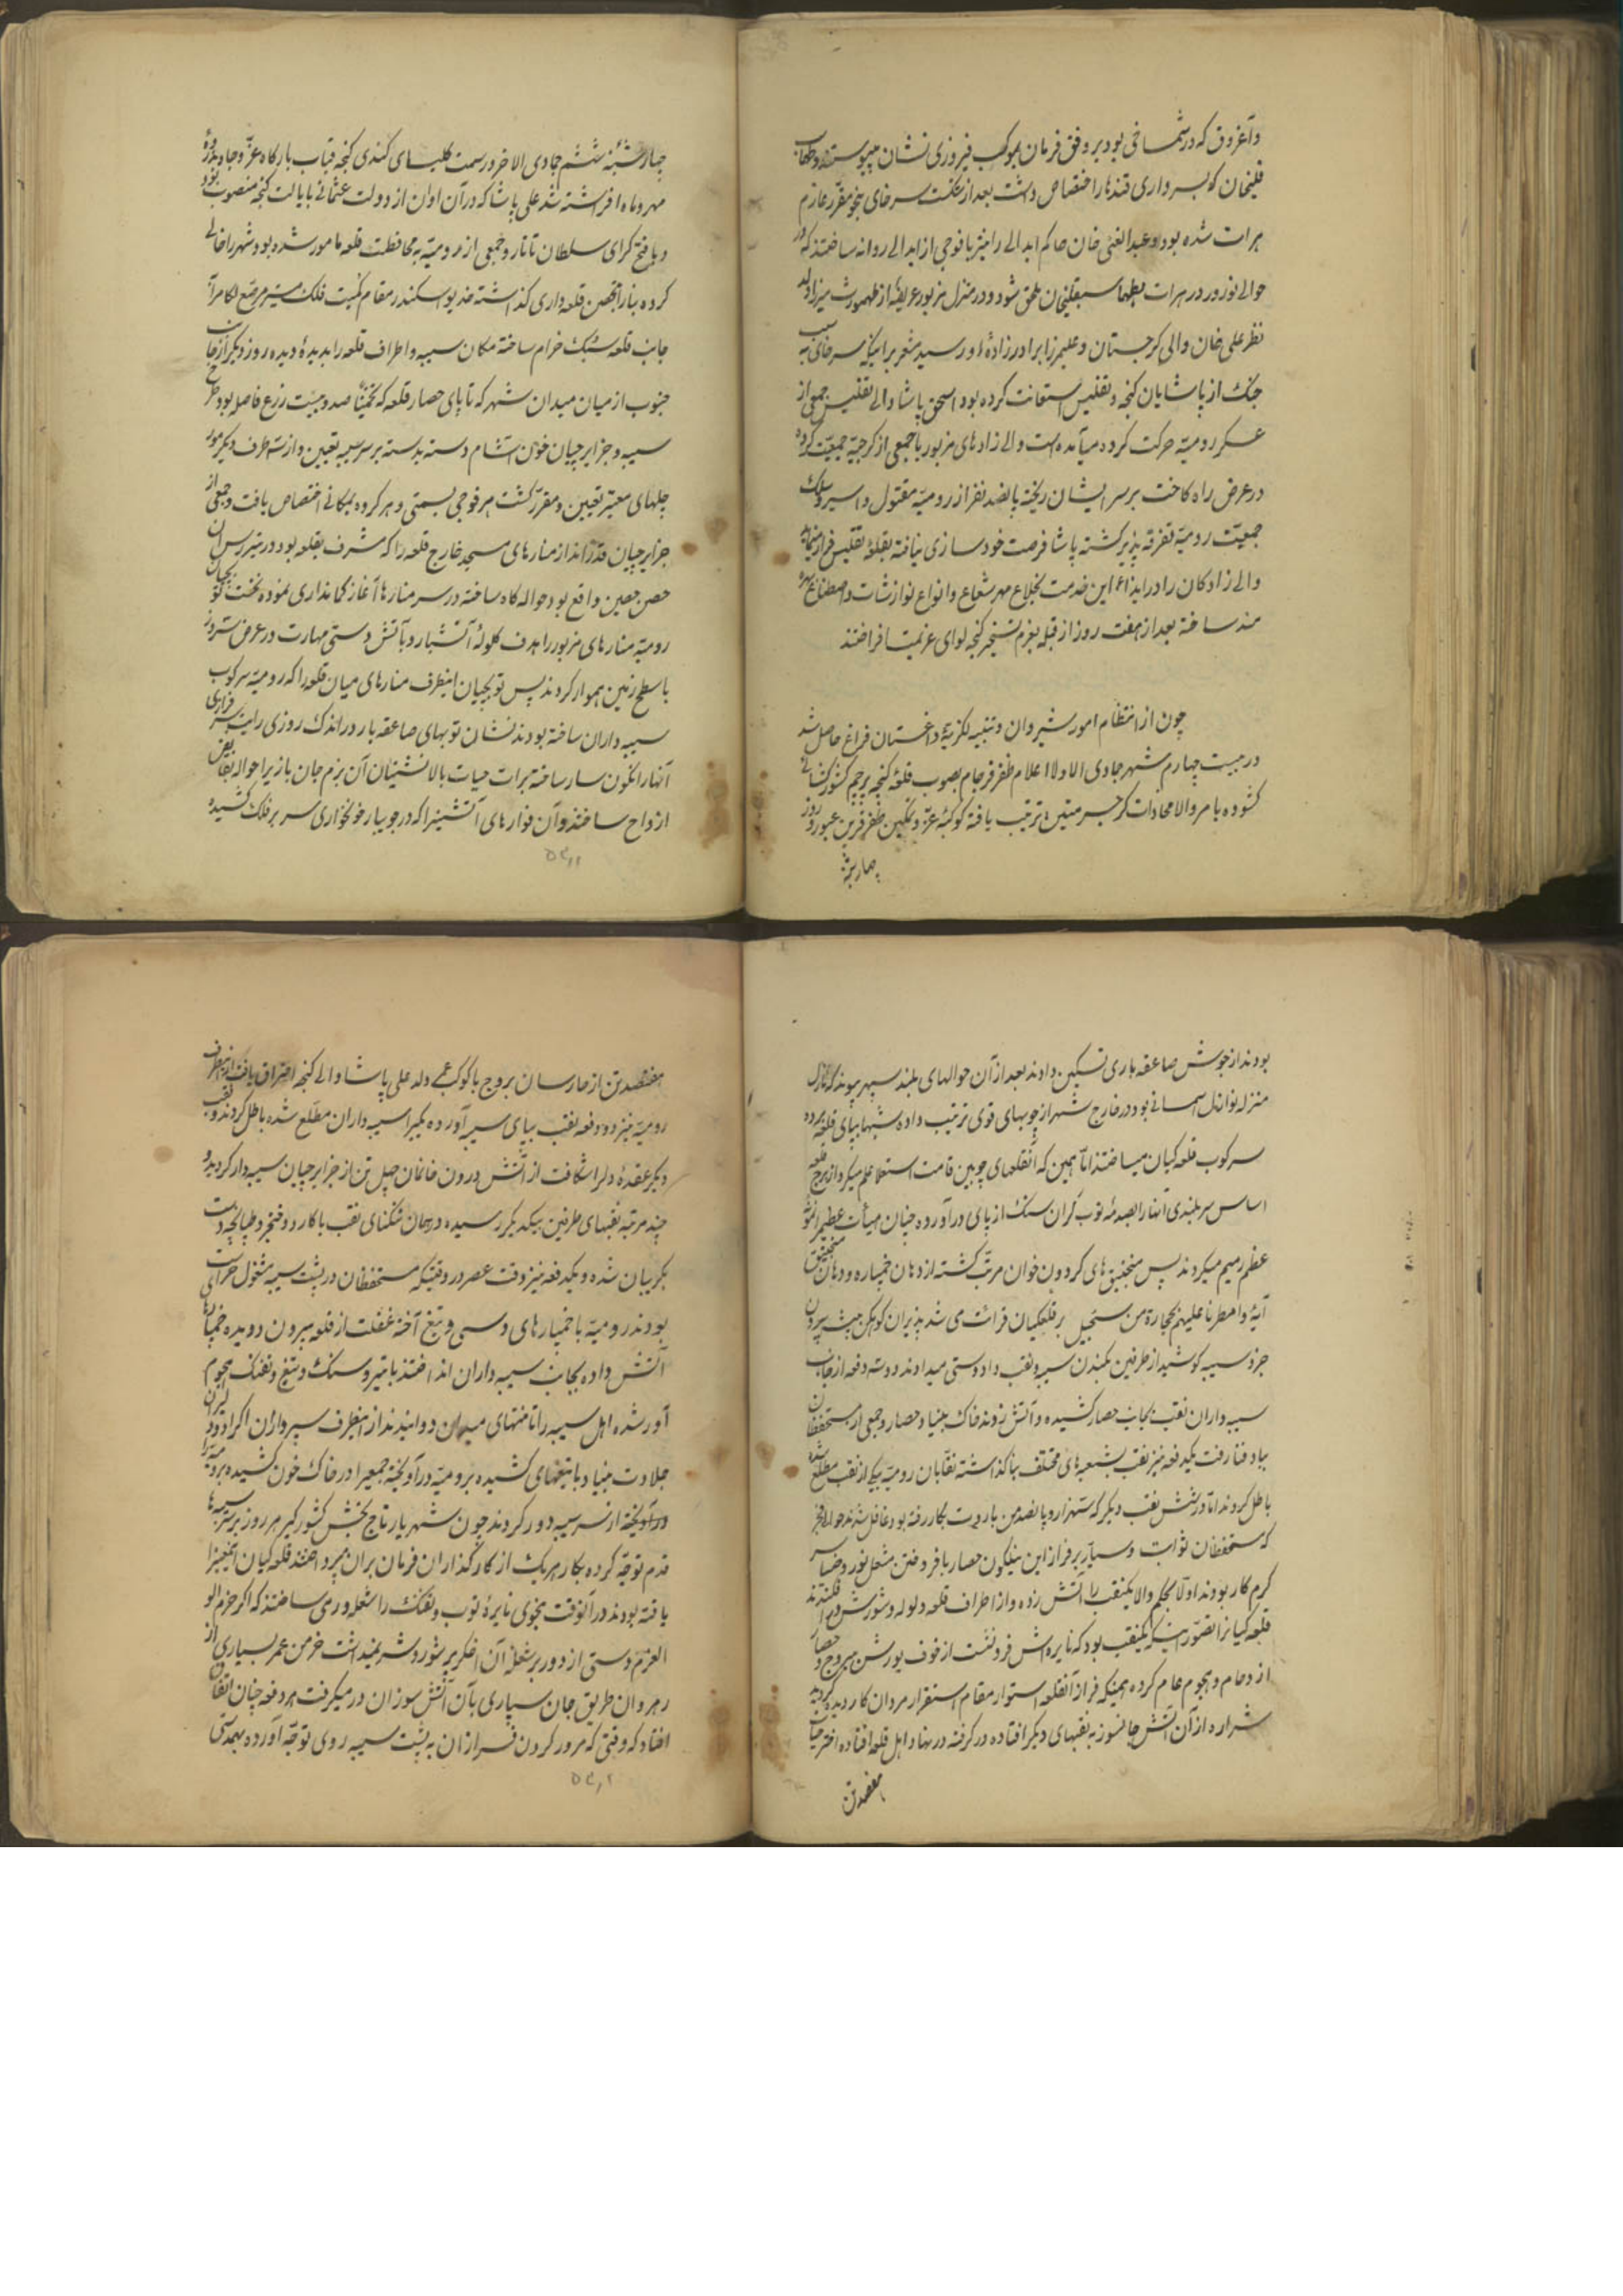 و آغروق که در شماخی بود بر وفق فرمان بموکب فیروزی نشان پیوسته و طهماسب
قلیخان که بسرداری قندهار اختصاص داشت بعد از شکست سرخای بنحو مقرر عازم
هرات شده بود و عبدالغنی خان حاکم ابدالی را نیز با فوجی از ابدالی روانه ساختند که در
حوالی نوروز در هرات بطهماسبقلیخان ملحق شود و در منزل مزبور عریضهٔ از طهمورث میرزا ولد
نظر علی خان والی گرجستان و علیمیرزا برادرزادهٔ او رسید مشعر بر اینکه سرخای به سبب
جنگ از پاشایان گنجه و تفلیس استعانت کرده بود اسحق پاشا والی تفلیس جمعی از
عسکر رومیه حرکت کرده میآمده است والی زادهای مزبور با جمعی از گرجیه جمعیت کرده
در عرض راه کاخت بر سر ایشان ریخته پانصد نفر از رومیه مقتول و اسیر و سلک
جمعیت رومیه تفرقه پذیر گشته پاشا فرصت خودسازی نیافته بقلعهٔ تفلیس فرار مینماید
والی زادگان را در ازاء این خدمت بخلاع مهر شعاع و انواع نوازشات و اصطناع بهره
مند ساخته بعد از هفت روز از قبله بعزم تسخیر گنجه لوای عزیمت افراختند
چون از انتظام امور شیروان و تنبیه لکزیهٔ داغستان فراغ حاصل شد
در بیست چهارم شهر جمادی الاولا اعلام ظفر فرجام بصوب قلعهٔ گنجه پرچم کشورگشائی
گشوده با مر والا محاذات کر جسر متین ترتیب یافته کوکبهٔ عز و تمکین ظفر قرین عبور و روز
چهارشنبه
چهارشنبهٔ ششم جمادی الاخر در سمت کلیسای کندی گنجه قباب بارگاه عز و جاه بذروهٔ
مهر و ماه افراشته شد علی پاشا که در آن اوان از دولت عثمانی بایالت گنجه منصوب بود
و با فتح کرای سلطان تاتار و جمعی از رومیه به محافظت قلعه مامور شده بود و شهر را خالی
کرده بنا را بتحصن و قلعه داری گذاشته خدیو اسکندر مقام کمیت فلک مسیر مرصع لگام را
جانب قلعه سبک خرام ساخته مکان سیبه و اطراف قلعه را بدیدهٔ دیده روز دیگر از جانب
جنوب از میان میدان شهر که تا پای حصار قلعه که تخمیناً صد و بیست زرع فاصله بود طرح
سیبه و جزایرچیان خون آشام دسته بدسته بر سر سیبه تعیین و از سه طرف دیگر مور
چلهای معتبر تعیین و مقرر گشت هر فوجی بسمتی و هر گروه بمکانی اختصاص یافت و جمعی از
جزایرچیان قدر انداز منارهای مسجد خارج قلعه را که مشرف بقلعه بود و در تیررس آن
حصن حصین واقع بود حواله گاه ساخته در سر منارها آغاز کمانداری نموده نخست توپچیان
رومیه منارهای مزبور را هدف گلولهٔ آتشبار و بآتش دستی مهارت در عرض سه روز
با سطح زمین هموار کردند پس توپچیان اینطرف منارهای میان قلعه را که رومیه سرکوب
سیبه داران ساخته بودند نشان توپهای صاعقه بار و در اندک روزی رایت سرفرازی
آنها را نگون سار ساخته برات حیات بالانشینان آن بزم جانبازی را حواله بقابض
ارواح ساختند و آن فوارهای آتشین را که در جویبار خونخواری سر بر فلک کشیده
بودند از جوش صاعقه باری تسکین دادند بعد از آن حوالهای بلند سپهر پیوند که نازل
منزله نوازل آسمانی بود در خارج شهر از چوبهای قوی ترتیب داده شبها بپای قلعه برده
سرکوب قلعه کیان میساختند اما همین که آنقلعهای چوبین قامت استعلا علم میکرد از برج قلعه
اساس سربلندی آنها را بصدمهٔ توپ گران سنگ از پای درآورده چنان هیأت عظیم را نمونهٔ
عظم رمیم میکردند پس منجنیق های گردون خوان مرتب گشته از دهان خمپاره و دهان منجنیق
آیهٔ و امطرنا علیهم بحجارة من سجیل بر قلعکیان قرائت می شد پذیران کوهکن پیشه بیرون
جز و سیبه کوشید از طرفین بکندن سیبه و نقب داد دوستی میدادند دو سه دفعه از جانب
سیبه داران نقب بجانب حصار کشیده و آتش زدند خاک بنیاد حصار و جمعی از مستحفظان
بباد فنا رفت یکدفعه نیز نقب بشعبهای مختلف بنا گذاشته نقابان رومیه بیکی از نقب مطلع شده
باطل کردند اما در شش نقب دیگر که سه هزار و پانصد من باروت بکار رفته بود غافل شدند حوالی فجر
که مستحفظان ثوابت و سیار بر فراز این نیلگون حصار بافروختن مشعل نور و ضیا سر
گرم کار بودند اولا بحکم والا یکنقب را آتش زده و از اطراف قلعه ولوله و شورش درافکندند
قلعه کیانرا تصور اینکه یکنقب بود که نایره اش فرونشست از خوف یورش ببروج و حصار
ازدحام و هجوم عام کرده همینکه فراز آنقلعه استوار مقام استقرار مردان کار دیده گردید
شراره از آن آتش جانسوز به نقبهای دیگر افتاده در گرفته در نهاد اهل قلعه افتاده اختر حیات
هفتصد تن
هفتصد تن از حارسان بروج با کوکب علی ولد علی پاشا والی گنجه احتراق یافت از آنطرف
رومیه نیز دو دفعه نقب بپای سیبه آورده یکی را سیبه داران مطلع شده باطل کردند و نقب
دیگر عقدهٔ دلرا شکافت از آتش درون خانمان چهل تن از جزایرچیان سیبه دار گردید و
چند مرتبه نقبهای طرفین بیکدیگر رسیده در همان تنگنای نقب با کارد و خنجر و طپانچه دست
بگریبان شده و یکدفعه نیز وقت عصر در وقتیکه مستحفظان در پشت سیبه مشغول حراست
بودند رومیه با خمپارهای دستی و تیغ آخته غفلت از قلعه بیرون دویده خمپارها
آتش داده بجانب سیبه داران انداختند با تیر و سنگ و تیغ و تفنگ هجوم
آور شده اهل سیبه را تا منتهای میدان دوانیدند از اینطرف سپرداران اکراد و دلیران
جلادت بنیاد با تیغهای کشیده برومیه درآویخته جمعی را در خاک خون کشیده رومیه را
درآویخته از سر سیبه دور کردند چون شهریار تاج بخش کشورگیر هر روز بر سر سیبه‌ها
قدم توجه کرده بکار هر یک از کارگذاران فرمان بران میپرداختند قلعه کیان اینمعنی را
یافته بودند در آنوقت بنحوی نایرهٔ توپ و تفنگ را شعله ور می ساختند که اگر حزم اولو
العزم دستی از دور بر شعلهٔ آن اخگر پر شور و شر نمیداشت خرمن عمر بسیاری از
رهروان طریق جان سپاری بآن آتش سوزان در میگرفت هر دفعه چنان اتفاق
افتاد که وقتی که مرور گردون فرازان به پشت سیبه روی توجه آورده بهمدستی